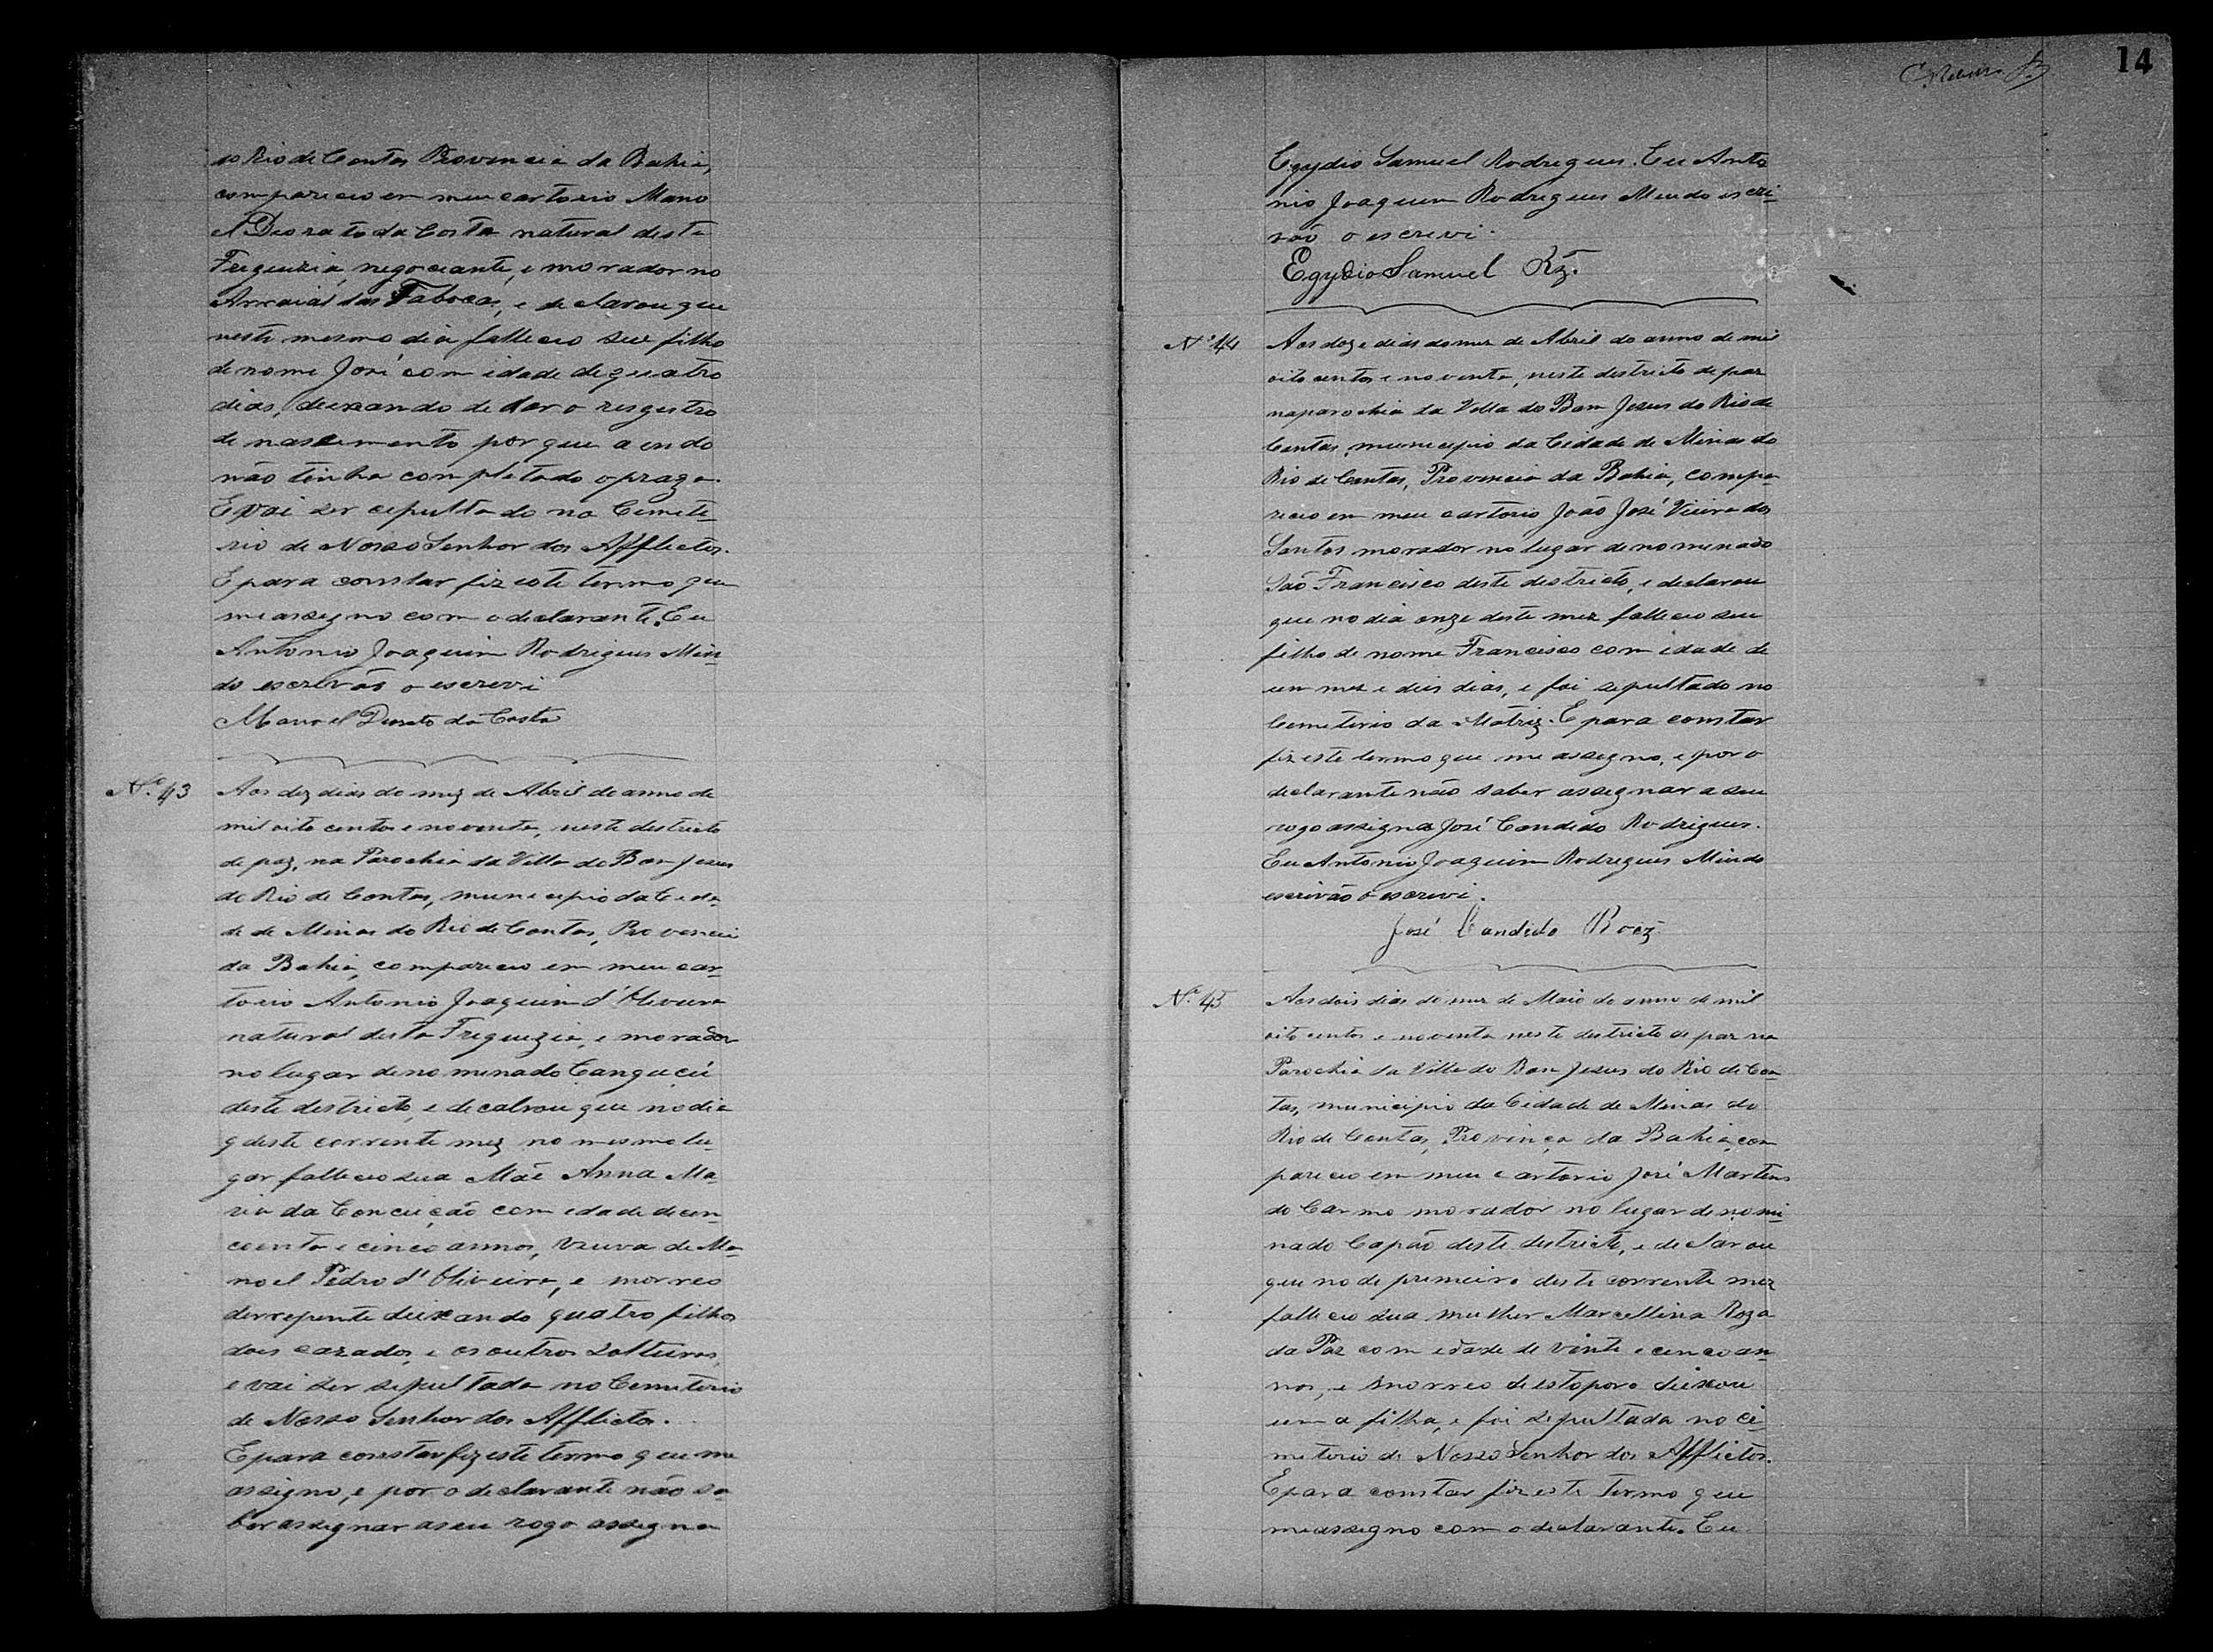 do Rio de Contas Provincia da Bahia,
compareceo em meu cartorio Mano
el Deorato da Costa natural desta
Freguezia, negociante, e morador no
Arraial das Tabocas, e declarou que
neste mesmo dia falleceo seu filho
de nome José com idade de quatro
dias, deixando de dar o resgistro
de nascimento por que a endo
não tinha completado o prazo.
E vai ser cepultado no Cemite-
rio de Nosso Senhor dos Afflictos.
E para constar fiz este termo que
me assegno com o declarante. Eu
Antonio Joaquim Rodrigues Min-
do escrivão o escrevi
Manoel Deorato da Costa
N.º 43
Aos dez dias do mez de Abril do anno de
mil oito centos e noventa, neste destricto
de paz, na Parochia da Villa do Bom Jesus
do Rio de Contas, municipio da Cida-
de de Minas do Rio de Contas, Provencia
da Bahia, compareceo em meu car-
torio Antonio Joaquim d'Oliveira
natural desta Freguezia, e morador
no lugar denominado Canguçú
deste destricto, e decalrou que no dia
9 deste corrente mez no mesmo lu-
gar falleceo sua Mãe Anna Ma-
ria da Conceição com idade de cen-
coenta e cinco annos, viuva de Ma-
noel Pedro d'Oliveira, e morreo
derrepente deixando quatro filhos
dois cazados, e os outros solteiros,
e vai ser sepultada no Cemiterio
de Nosso Senhor dos Afflictos.
E para constar fiz este termo que me
assigno, e por o declarante não sa-
ber assegnar a seu rogo assegna
14
Egydio Samuel Rodrigues. Eu Anto
nio Joaquim Rodrigues Mindo escri-
vão o escrevi.
Egydio Samuel Rz.
N.º 44
Aos doze dias do mez de Abril do anno de mil
oito centos e noventa, neste destricto de paz
na parochia da Villa do Bom Jezus do Rio de
Contas, municipio da Cidade de Minas do
Rio de Contas, Provincia da Bahia, compa
receo em meu cartorio João José Vieira dos
Santos morador no lugar denomenado
São Francisco deste destricto, e declarou
que no dia onze deste mez falleceo seu
filho de nome Francisco com idade de
um mez e dois dias, e foi sepultado no
Cemeterio da Matriz. E para constar
fiz este termo que me assegno, e por o
declarante não saber assegnar a seu
rogo assigna José Candido Rodrigues.
Eu Antonio Joaquim Rodrigues Mindo
escrivão o escrevi.
José Candido Roiz
N.º 45
Aos dois dias do mez de Maio do anno de mil
oito centos e noventa neste destricto de paz na
Parochia da Villa do Bom Jezus do Rio de Con-
tas, municipio da Cidade de Minas do
Rio de Contas, Provinça da Bahia, com
pareceo em meu cartorio José Martins
do Carmo morador no lugar denomi-
nado Capão deste destricto, e declarou
que no de premeiro deste corrente mez
falleceo sua mulher Marcellina Roza
da Paz com edade de vinte e cenco an-
nos, e morreo de estoporo deixou
um a filha, e foi sepultada no ce-
meterio de Nosso Senhor dos Afflictos.
E para constar fiz este termo que
me assegno com o declarante. Eu